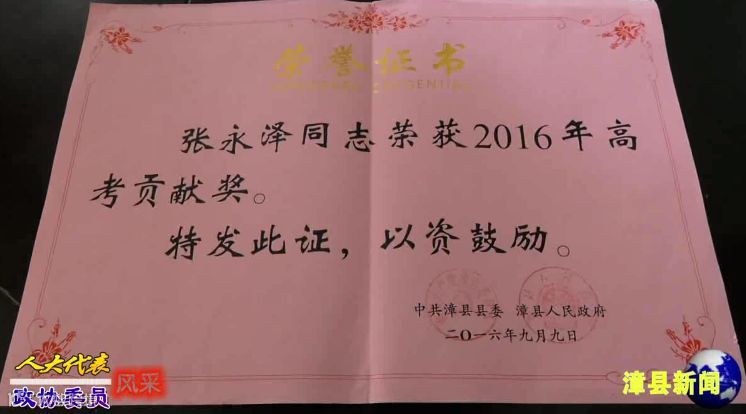 荣誉证书
张永泽同志荣获2016年高
考贡献奖。
特发此证，以资鼓励。
中共漳县县委 漳县人民政府
二〇一六年九月九日
人大代表
政协委员
风采
漳县新闻